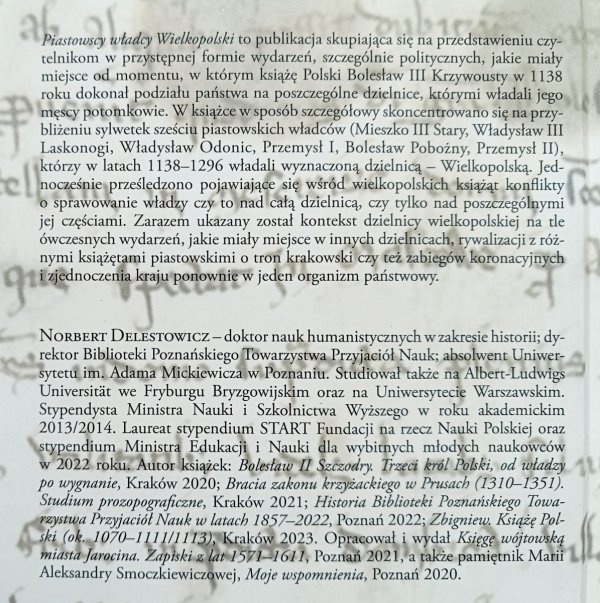 Piastowscy władcy Wielkopolski to publikacja skupiająca się na przedstawieniu czy-
telnikom w przystępnej formie wydarzeń, szczególnie politycznych, jakie miały
miejsce od momentu, w którym książę Polski Bolesław III Krzywousty w 1138
roku dokonał podziału państwa na poszczególne dzielnice, którymi władali jego
męscy potomkowie. W książce w sposób szczegółowy skoncentrowano się na przy-
bliżeniu sylwetek sześciu piastowskich władców (Mieszko III Stary, Władysław III
Laskonogi, Władysław Odonic, Przemysł I, Bolesław Pobożny, Przemysł II),
którzy w latach 1138–1296 władali wyznaczoną dzielnicą – Wielkopolską. Jed-
nocześnie prześledzono pojawiające się wśród wielkopolskich książąt konflikty
o sprawowanie władzy czy to nad całą dzielnicą, czy tylko nad poszczególnymi
jej częściami. Zarazem ukazany został kontekst dzielnicy wielkopolskiej na tle
ówczesnych wydarzeń, jakie miały miejsce w innych dzielnicach, rywalizacji z róż-
nymi książętami piastowskimi o tron krakowski czy też zabiegów koronacyjnych
i zjednoczenia kraju ponownie w jeden organizm państwowy.
Norbert Delestowicz – doktor nauk humanistycznych w zakresie historii; dy-
rektor Biblioteki Poznańskiego Towarzystwa Przyjaciół Nauk; absolwent Uniwer-
sytetu im. Adama Mickiewicza w Poznaniu. Studiował także na Albert-Ludwigs
Universität we Fryburgu Bryzgowijskim oraz na Uniwersytecie Warszawskim.
Stypendysta Ministra Nauki i Szkolnictwa Wyższego w roku akademickim
2013/2014. Laureat stypendium START Fundacji na rzecz Nauki Polskiej oraz
stypendium Ministra Edukacji i Nauki dla wybitnych młodych naukowców
w 2022 roku. Autor książek: Bolesław II Szczodry. Trzeci król Polski, od władzy
po wygnanie, Kraków 2020; Bracia zakonu krzyżackiego w Prusach (1310–1351).
Studium prozopograficzne, Kraków 2021; Historia Biblioteki Poznańskiego Towa-
rzystwa Przyjaciół Nauk w latach 1857–2022, Poznań 2022; Zbigniew. Książę Pol-
ski (ok. 1070–1111/1113), Kraków 2023. Opracował i wydał Księgę wójtowską
miasta Jarocina. Zapiski z lat 1571–1611, Poznań 2021, a także pamiętnik Marii
Aleksandry Smoczkiewiczowej, Moje wspomnienia, Poznań 2020.